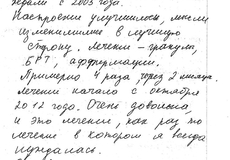 с 2003 года.
Настроение улучшилось, мысли
изменились в лучшую
сторону. Лечение – гранулы,
БРТ, аффирмации.
Примерно 4 раза, через 2 месяца.
Лечение начало с октября
2012 года. Очень довольна,
и это лечение, как раз то
лечение в котором я всегда
нуждалась.